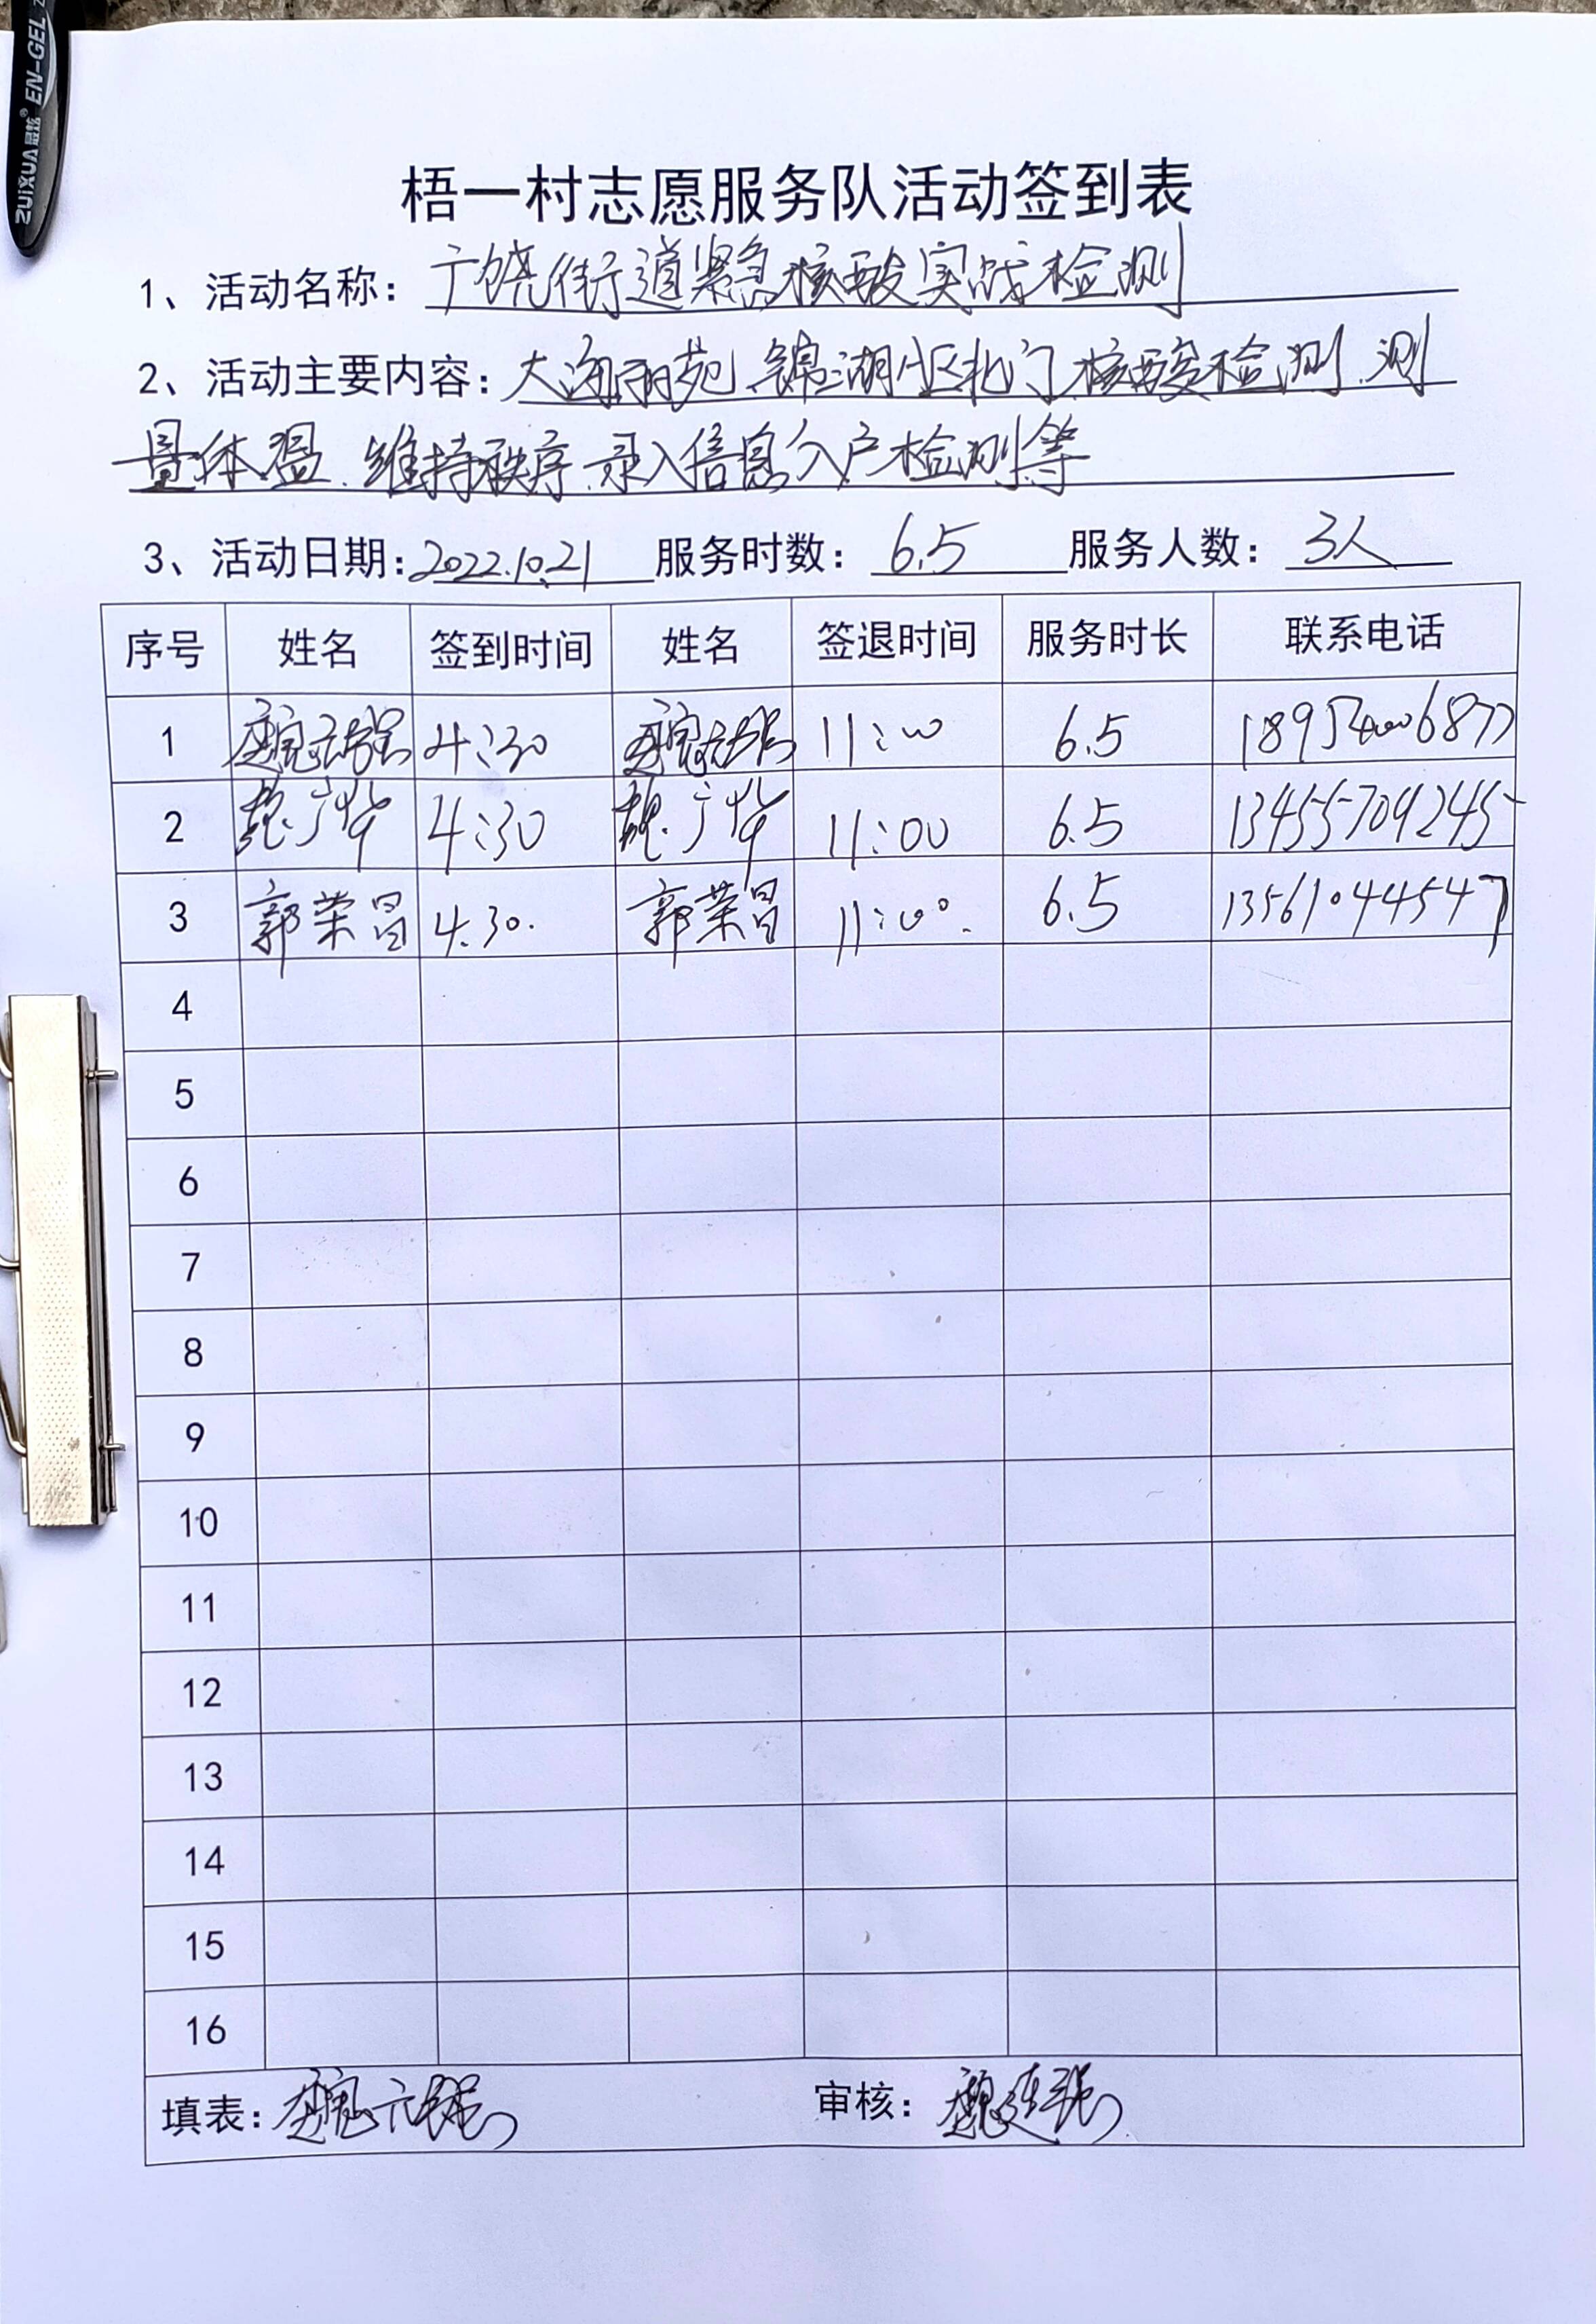 ZUIXUA 最炫® EN-GEL
梧一村志愿服务队活动签到表
1、活动名称：广饶街道紧急核酸实战检测
2、活动主要内容：大海丽苑、锦湖小区北门核酸检测、测
量体温、维持秩序、录入信息入户检测等
3、活动日期：2022.10.21 服务时数：6.5 服务人数：3人
序号 姓名 签到时间 姓名 签退时间 服务时长 联系电话
1 4:30 11:00 6.5
2 4:30 11:00 6.5
3 郭荣昌 4.30. 郭荣昌 11:00. 6.5 13561044547
4
5
6
7
8
9
10
11
12
13
14
15
16
填表： 审核：